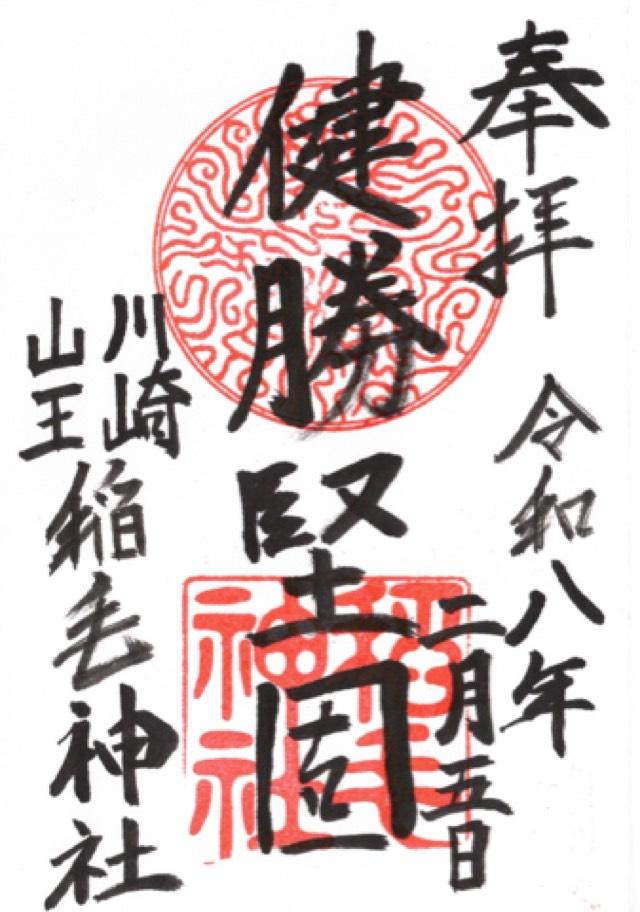 奉拝
令和八年
二月五日
健勝堅固
川崎
山王
稲毛神社
稲毛
神社